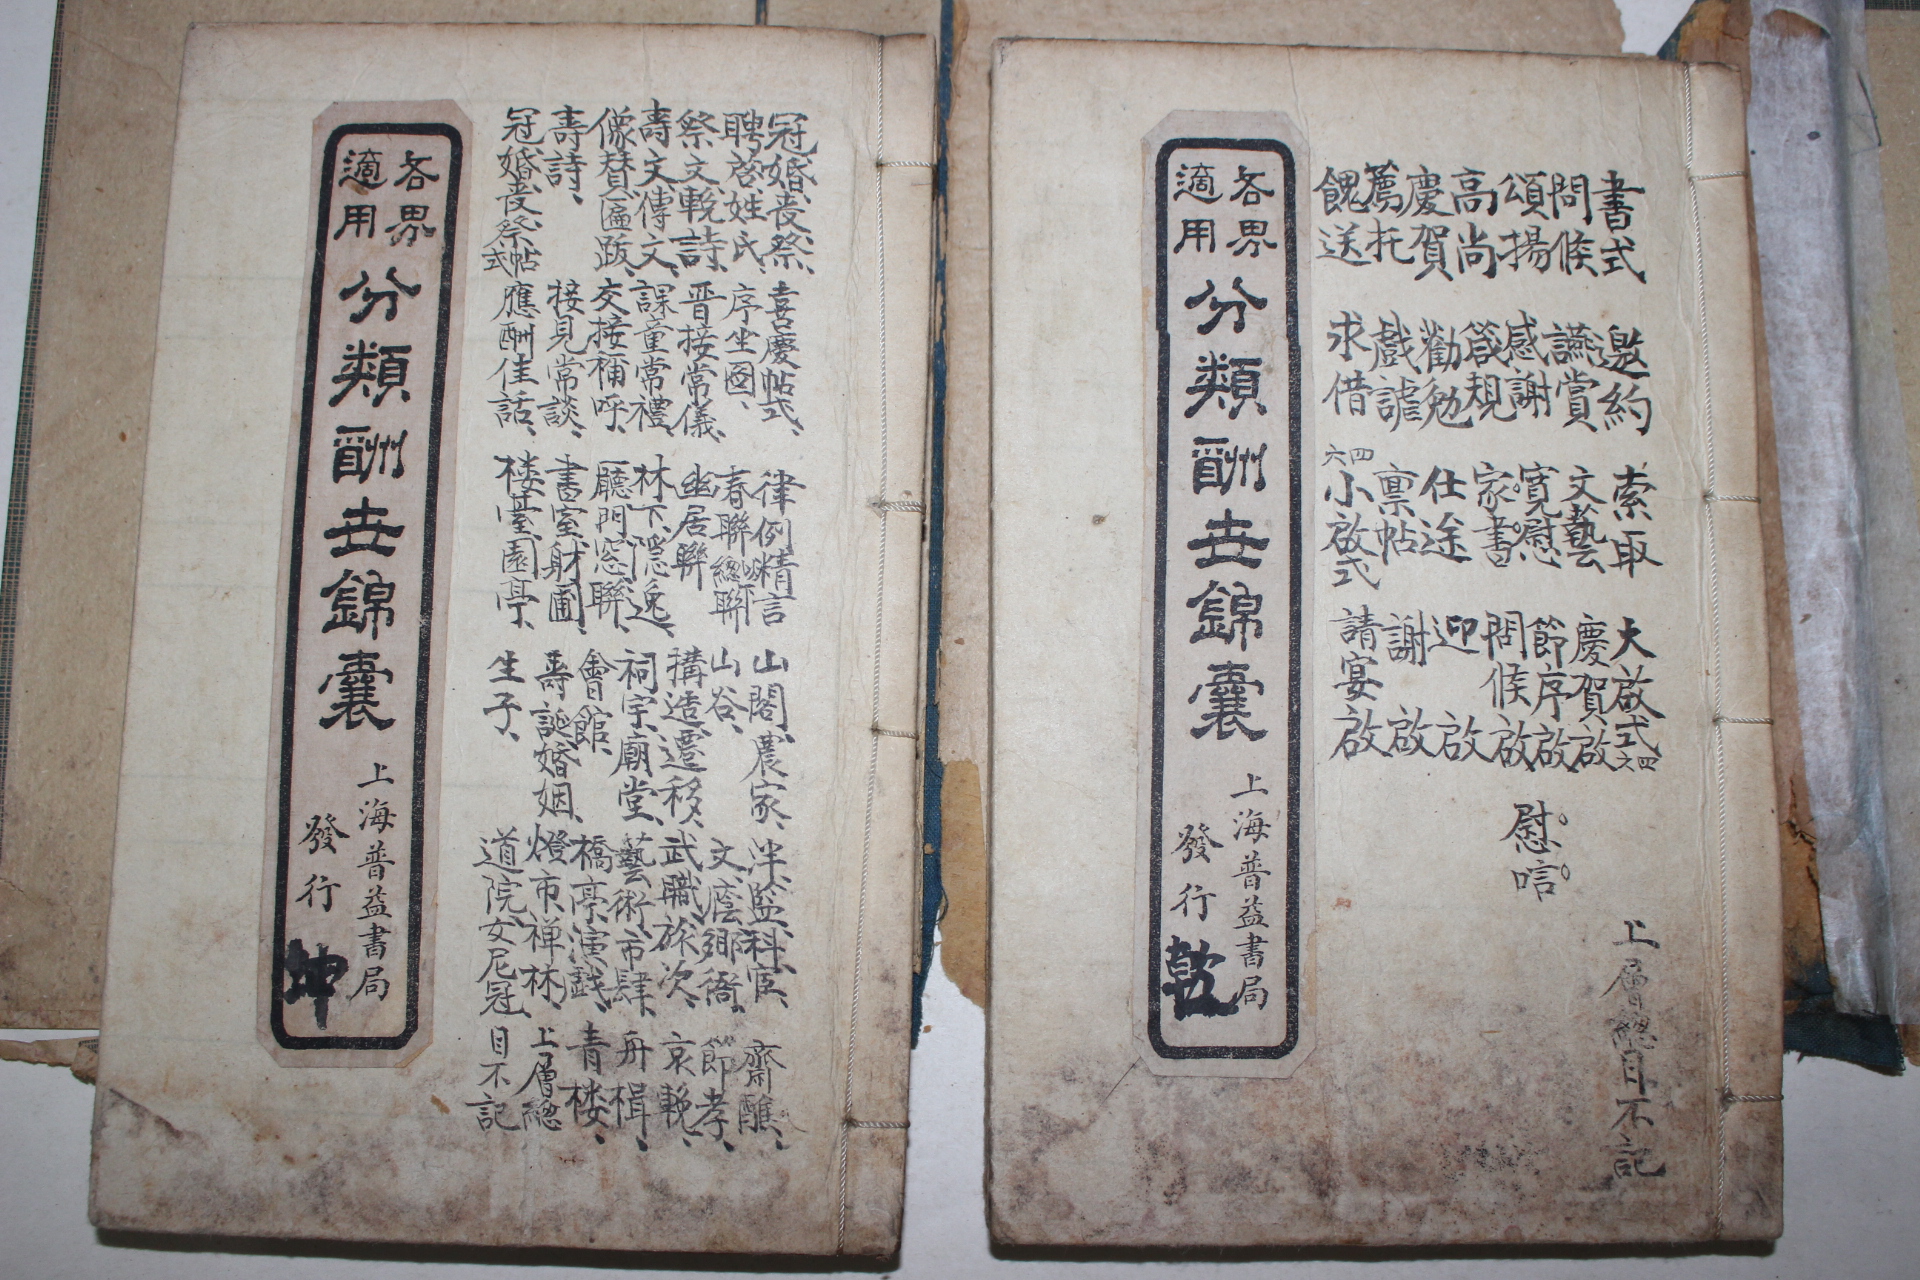 書式 邀約 索取 大啟式四六
問候 讌賞 文藝 慶賀、啟
頌揚 感謝 寬慰 節序啟 慰唁
高尚 箴規 家書 問候啟
慶賀 勸勉 仕途 迎啟
薦托 戲謔 稟帖 謝啟
餽送 求借 四六小啟式 請宴啟
上層總目不記
各界
適用
分類酬世錦囊
上海普益書局
發行
乾
冠婚、喪祭、 喜慶帖式、 律例精言 山閣、農家、 泮、監、科、宦、 齋醮、
聘啓、姓氏、 序坐圖、 春聯總聯 山谷、 文、廕、鄉、衙、 節孝、
祭文、輓詩、 晋接常儀、 幽居聯 搆造、遷移、 武職、旅次、 哀輓、
壽文、傳文、 課童常禮、 林下、隱逸、 祠宇、廟堂、 藝術、市肆、 舟楫、
像贊、匾跋、 交接稱呼、 廳門窓聯、 會館、 橋亭、演戲、 青楼、
壽詩、 接見常談、 書室、財圃、 壽誕婚姻、 燈市、禅林、 上層總
冠婚喪祭帖式 應酬佳話、 楼臺、園亭、 生子、 道院女尼冠 目不記
各界
適用
分類酬世錦囊
上海普益書局
發行
坤